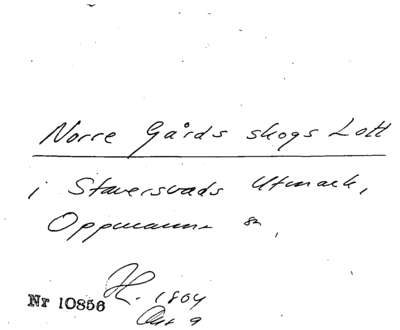 Norre Gårds skogs Lott
i Staversvads Utmark,
Oppmanna sn,
1804
Nr 10856